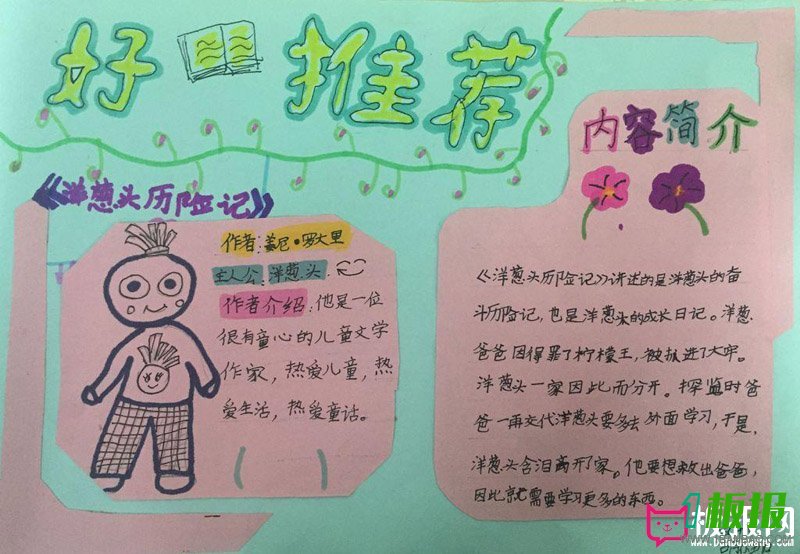 好推荐
《洋葱头历险记》
作者:姜尼·罗大里
主人公:洋葱头
作者介绍:他是一位
很有童心的儿童文学
作家,热爱儿童,热
爱生活,热爱童话。
内容简介
《洋葱头历险记》讲述的是洋葱头的奋
斗历险记,也是洋葱头的成长日记。洋葱
爸爸因得罪了柠檬王,被抓进了大牢。
洋葱头一家因此而分开。探监时爸
爸一再交代洋葱头要多去外面学习,于是,
洋葱头含泪离开了家。他要想救出爸爸,
因此就需要学习更多的东西。
板报网
www.banbaowang.com